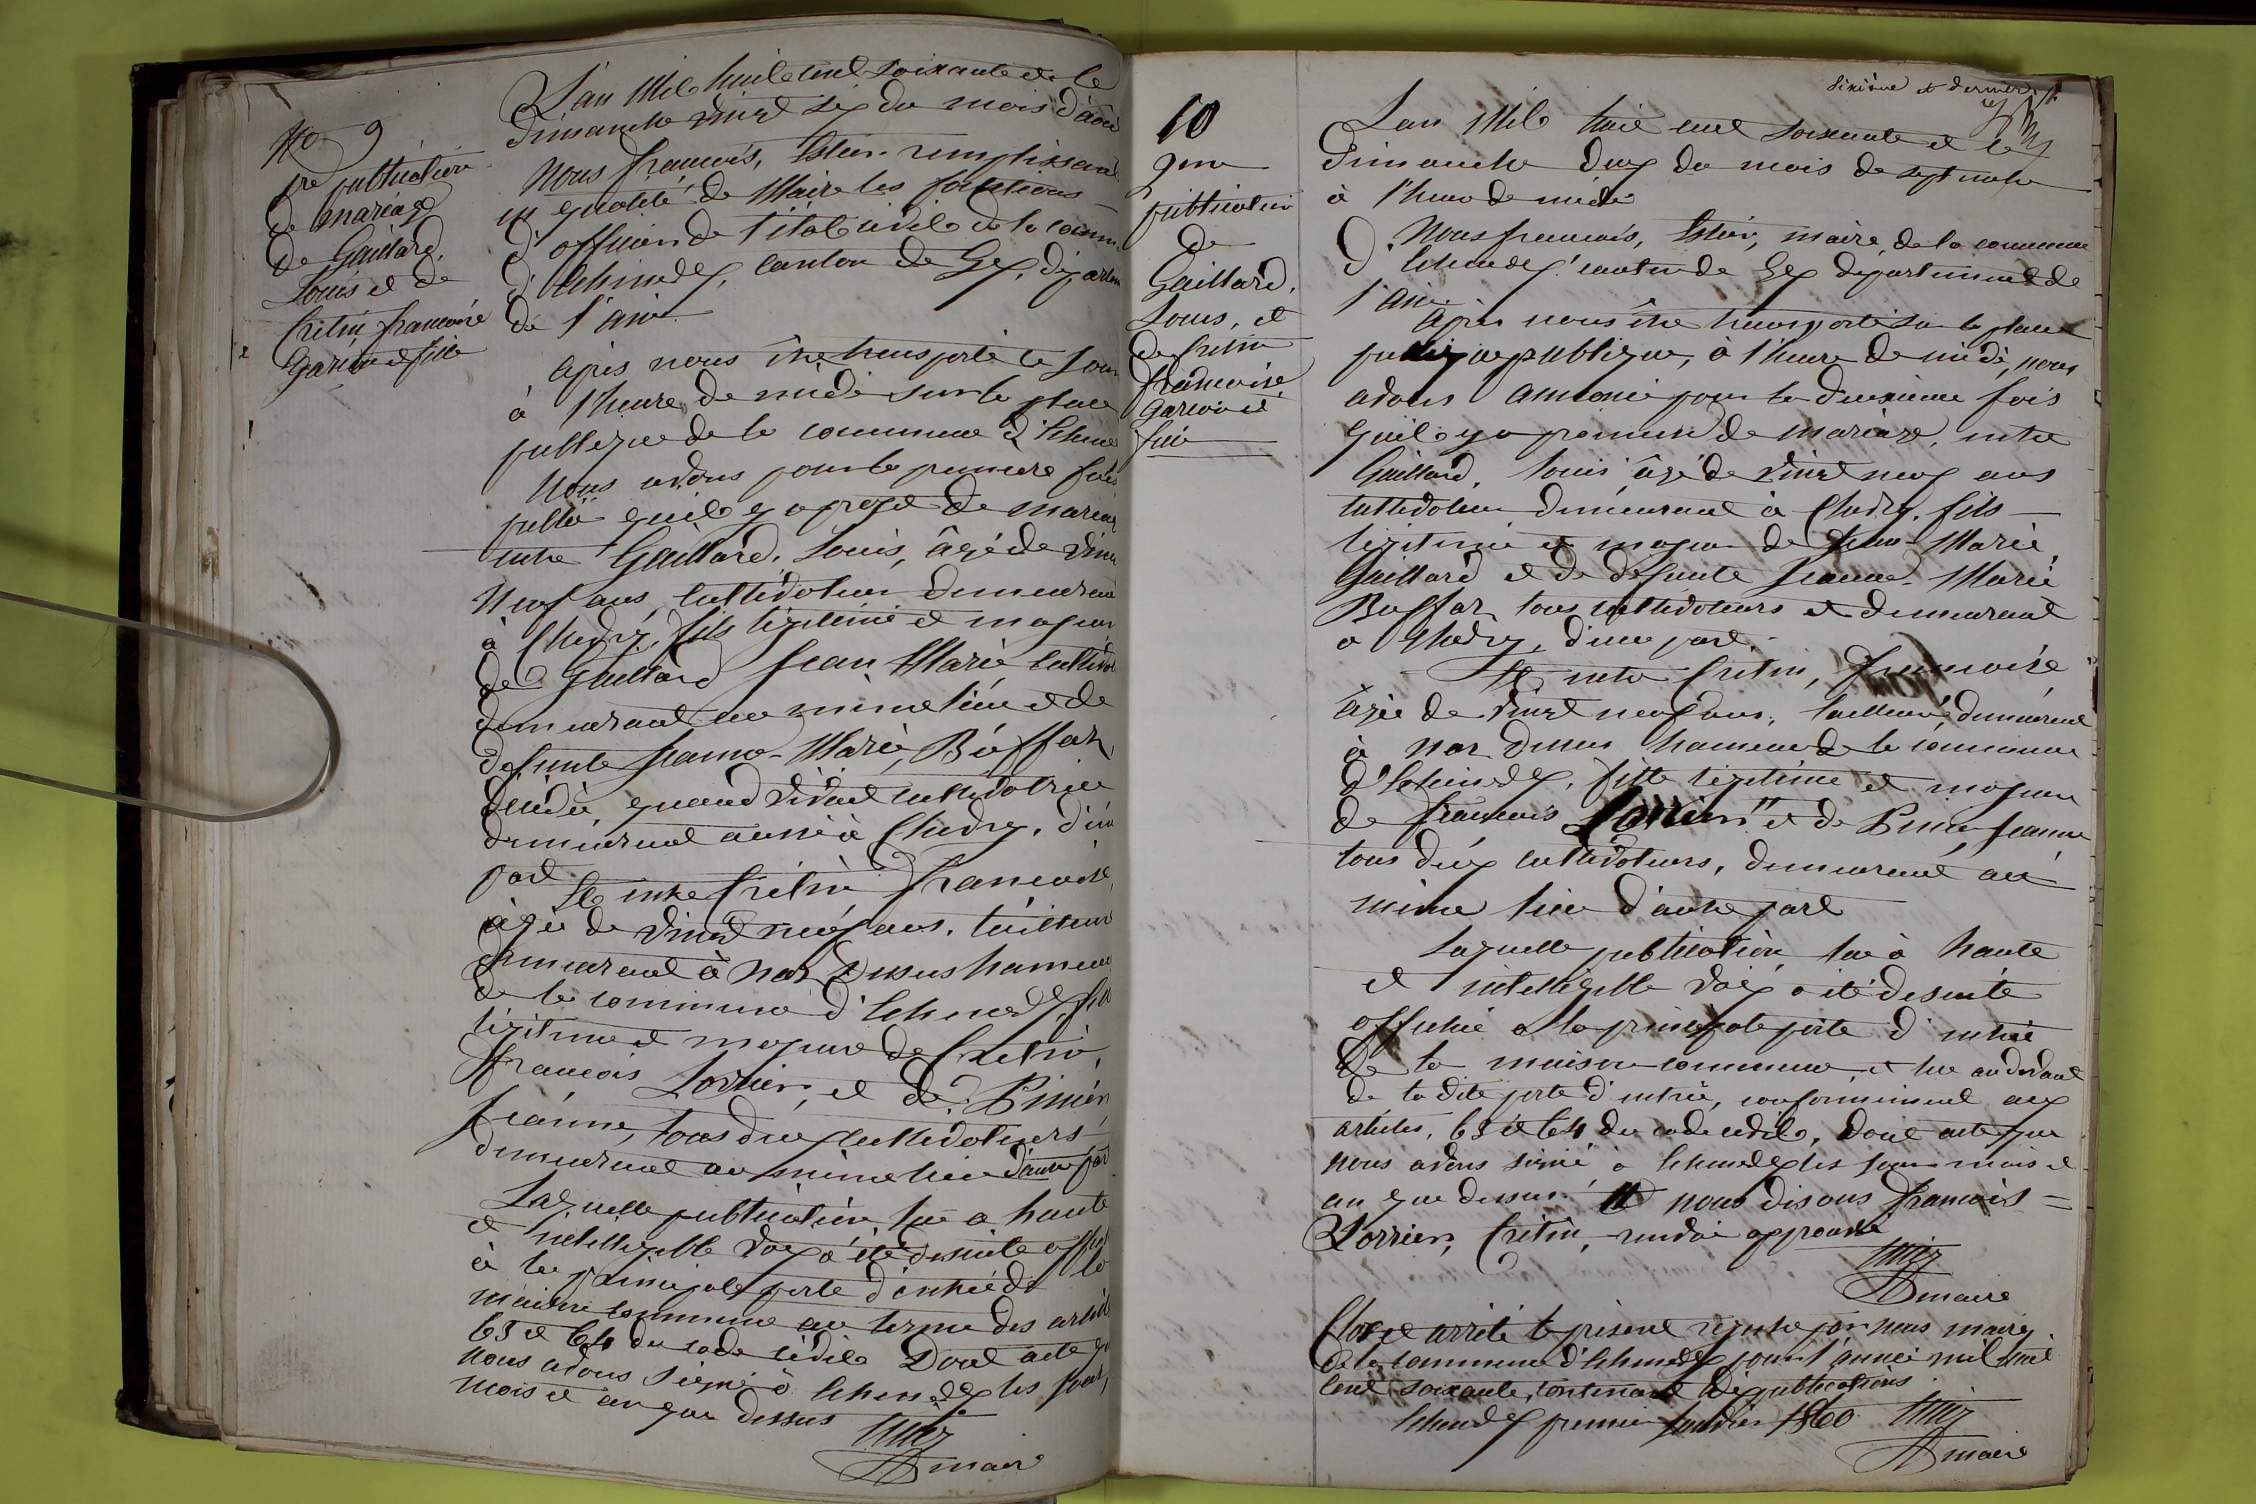 No 9
pre publication
de mariage
de Gaillard,
Louis et de
Critin françoise
Garçon et fille
L'an Mil huit cent soixante et le
dimanche vingt six du mois d'août
Nous françois, Estier remplissant
en qualité de Maire les fonctions
d'officier de l'état civil de la comm
d'Echenevex, canton de Gex, départem
de l'ain
après nous être transporté ce jour
à l'heure de midi sur la place
publique de la commune d'Echene
Nous avons pour la première fois
publié qu'il y a projet de mariage
entre Gaillard, Louis, âgé de vingt
Neuf ans, cultivateur demeurant
à Chevry, fils légitime et majeur
de Gaillard Jean Marie, cultivat
demeurant au même lieu et de
defunte Jeanne-Marie, Buffaz
décédée, quand vivait cultivatrice
demeurant aussi à Chevry, d'une
part
Et entre Critin françoise,
âgée de vingt neuf ans, tailleuse
demeurant à Naz Dessus hameau
de la commune d'Echenevex, fille
légitime et majeure de Critin,
françois Lorrien, et de Pinier
jeanne, tous deux cultivateurs
demeurant au même lieu d'autre part
Laquelle publication, lue a haute
et intelligible voix a été desuite affichée
à la principale porte d'entrée de la
maison commune au terme des articles
63 et 64 du code civil. Dont acte que
nous avons signé à Echenevex les jour,
mois et an que dessus
maire
Sixième et dernier
10
2me
publication
de
Gaillard,
Louis, et
de Critin
françoise
garçon et
fille
L'an Mil huit cent soixante et le
Dimanche deux du mois de septembre
à l'heure de midi
Nous françois, Estier, maire, de la commune
d'Echenevex canton de Gex département de
l'ain
Après nous être transporté sur la place
publique, à l'heure de midi, nous
avons annoncé pour la deuxième fois
qu'il y a promesse de mariage, entre
Gaillard, Louis âgé de vingt neuf ans
cultivateur demeurant à Chevry, fils
légitime et majeur de Jean-Marie,
Gaillard et de defunte Jeanne-Marie
Buffaz tous cultivateurs et demeurant
a Chevry, d'une part.
Et entre Critin, françoise
âgée de vingt neuf ans, tailleuse, demeurant
à Naz dessus hameau de la commune
d'Echenevex, fille légitime et majeure
de françois Lorrien et de Pinier jeanne
tous deux cultivateurs, demeurant au
même lieu d'autre part
Laquelle publication, lue à haute
et intelligible voix a été desuite
affichée a la principale porte d'entrée
de la maison commune, et lue au devant
de la dite porte d'entrée, conformément aux
articles, 63 et 64 du code civil, Dont acte que
nous avons signé à Echenevex les jour mois et
an que dessus. nous disons françois =
Lorrien, Critin, renvoi approuvé
maire
Clos et arrêté le présent registre par nous maire
de la commune d'Echenevex pour l'année mil huit
cent soixante, contenant dix publications
Echenevex premier janvier 1860
maire